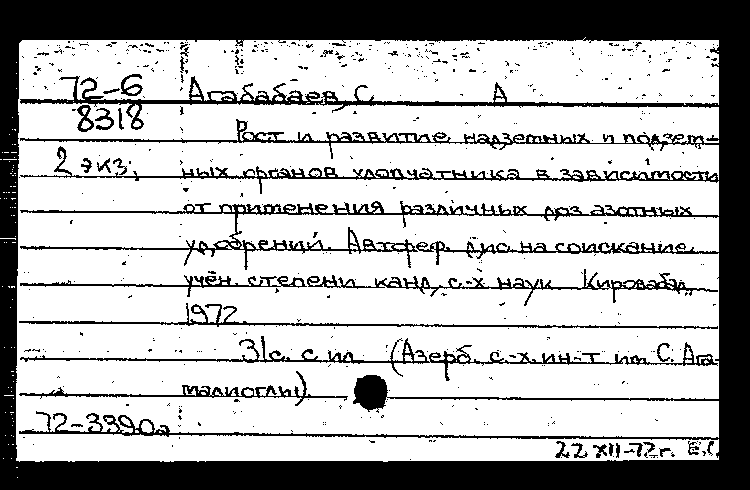 72-6 Агабабаев, С. А
8318
Рост и развитие надземных и подзем-
2 экз.
ных органов хлопчатника в зависимости
от применения различных доз азотных
удобрений. Автореф. дис. на соискание
учён. степени канд. с.-х. наук. Кировабад,
1972.
31с. с ил. (Азерб. с.-х. ин-т им. С. Ага-
малиоглы).
72-3390а
22 XII-72 г. Е.С.